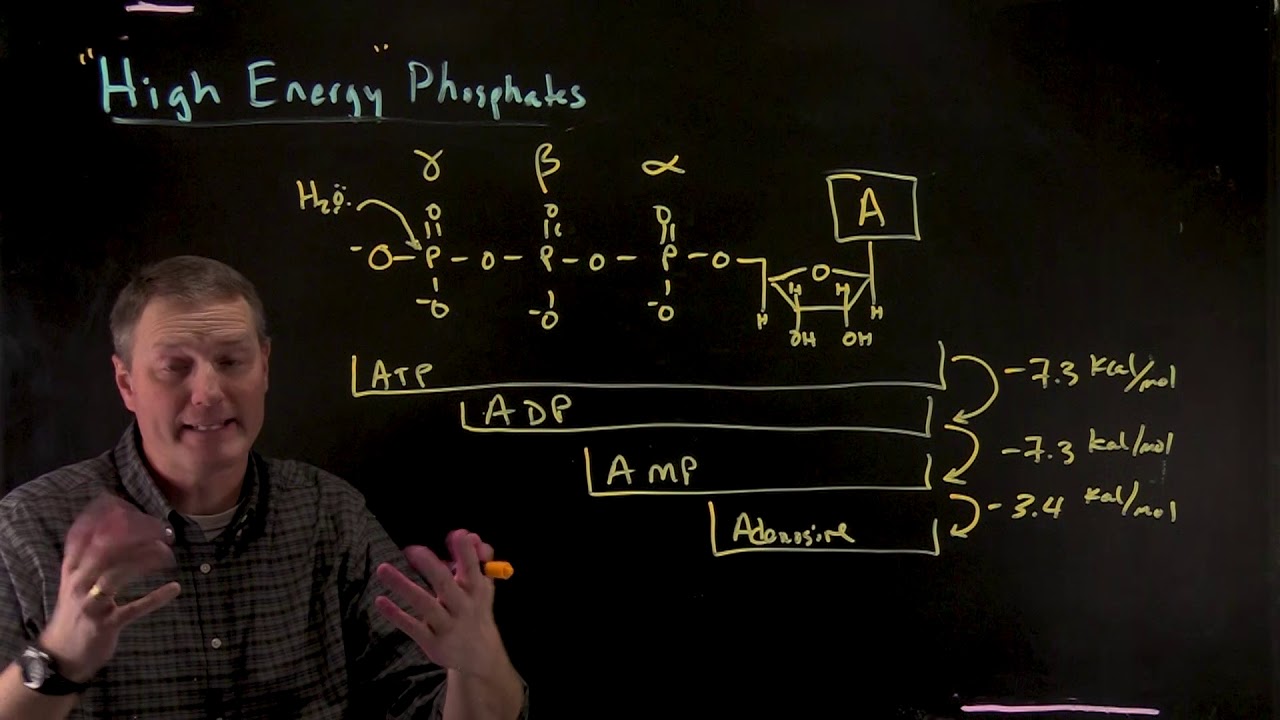 "High Energy" Phosphates
γ β α
H₂Ö:
O O O A
⁻O-P-O-P-O-P-O O
H H
⁻O ⁻O ⁻O H H
OH OH
ATP -7.3 kcal/mol
ADP
-7.3 kcal/mol
AMP
-3.4 kcal/mol
Adenosine